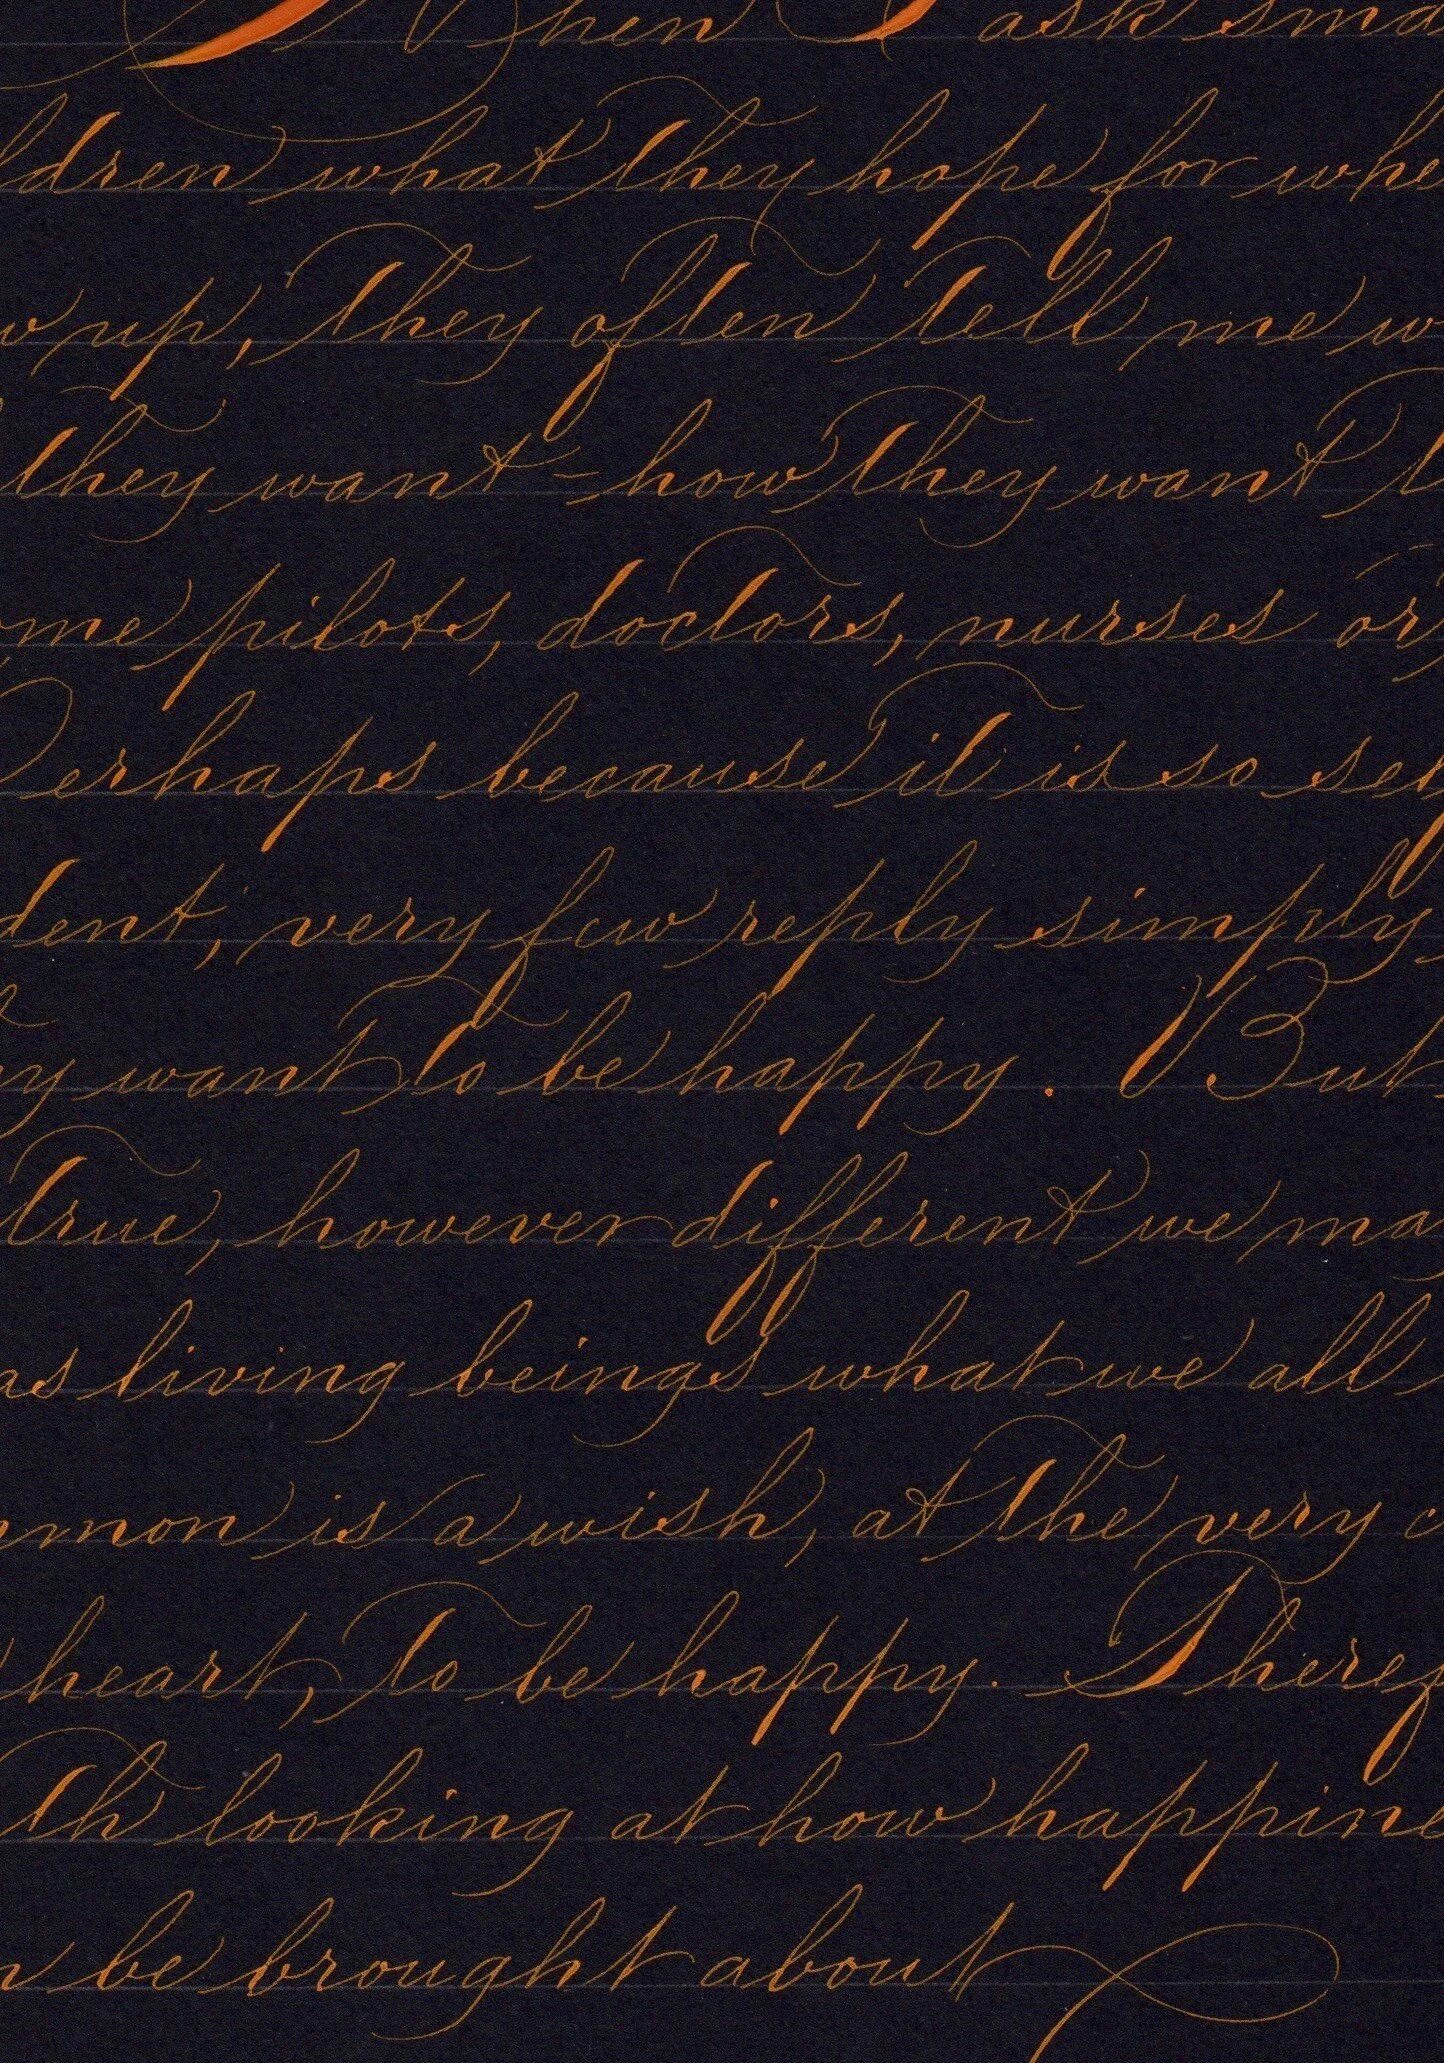 When I ask sma
ldren what they hope for whe
w up, they often tell me w
they want - how they want t
me pilots, doctors, nurses or
Perhaps because it is so self
dent, very few reply simply
y want to be happy. But
true, however different we ma
as living beings what we all
mmon is a wish, at the very c
heart, to be happy. Theref
th looking at how happine
n be brought about